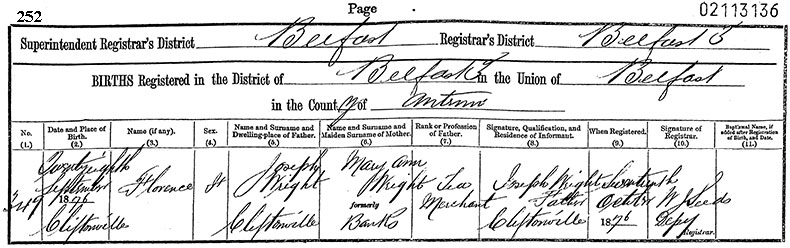 252 Page 02113136
Superintendent Registrar's District Belfast Registrar's District Belfast 3
BIRTHS Registered in the District of Belfast 3 in the Union of Belfast
in the County of Antrim
No. (1.) Date and Place of Birth. (2.) Name (if any). (3.) Sex. (4.) Name and Surname and Dwelling-place of Father. (5.) Name and Surname and Maiden Surname of Mother. (6.) Rank or Profession of Father. (7.) Signature, Qualification, and Residence of Informant. (8.) When Registered. (9.) Signature of Registrar. (10.) Baptismal Name, if added after Registration of Birth, and Date. (11.)
349 Twentyeighth September 1876 Cliftonville Florence F Joseph Wright Cliftonville Mary Ann Wright formerly Banks Tea Merchant Joseph Wright Father Cliftonville Seventeenth October 1876 W J Seeds Depy Registrar.